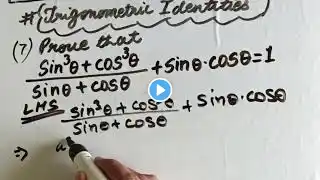 # Trigonometric Identities
(7) Prove that
sin³θ + cos³θ / sinθ + cosθ + sinθ·cosθ = 1
LHS sin³θ + cos³θ / sinθ + cosθ + sinθ·cosθ
⇒ a